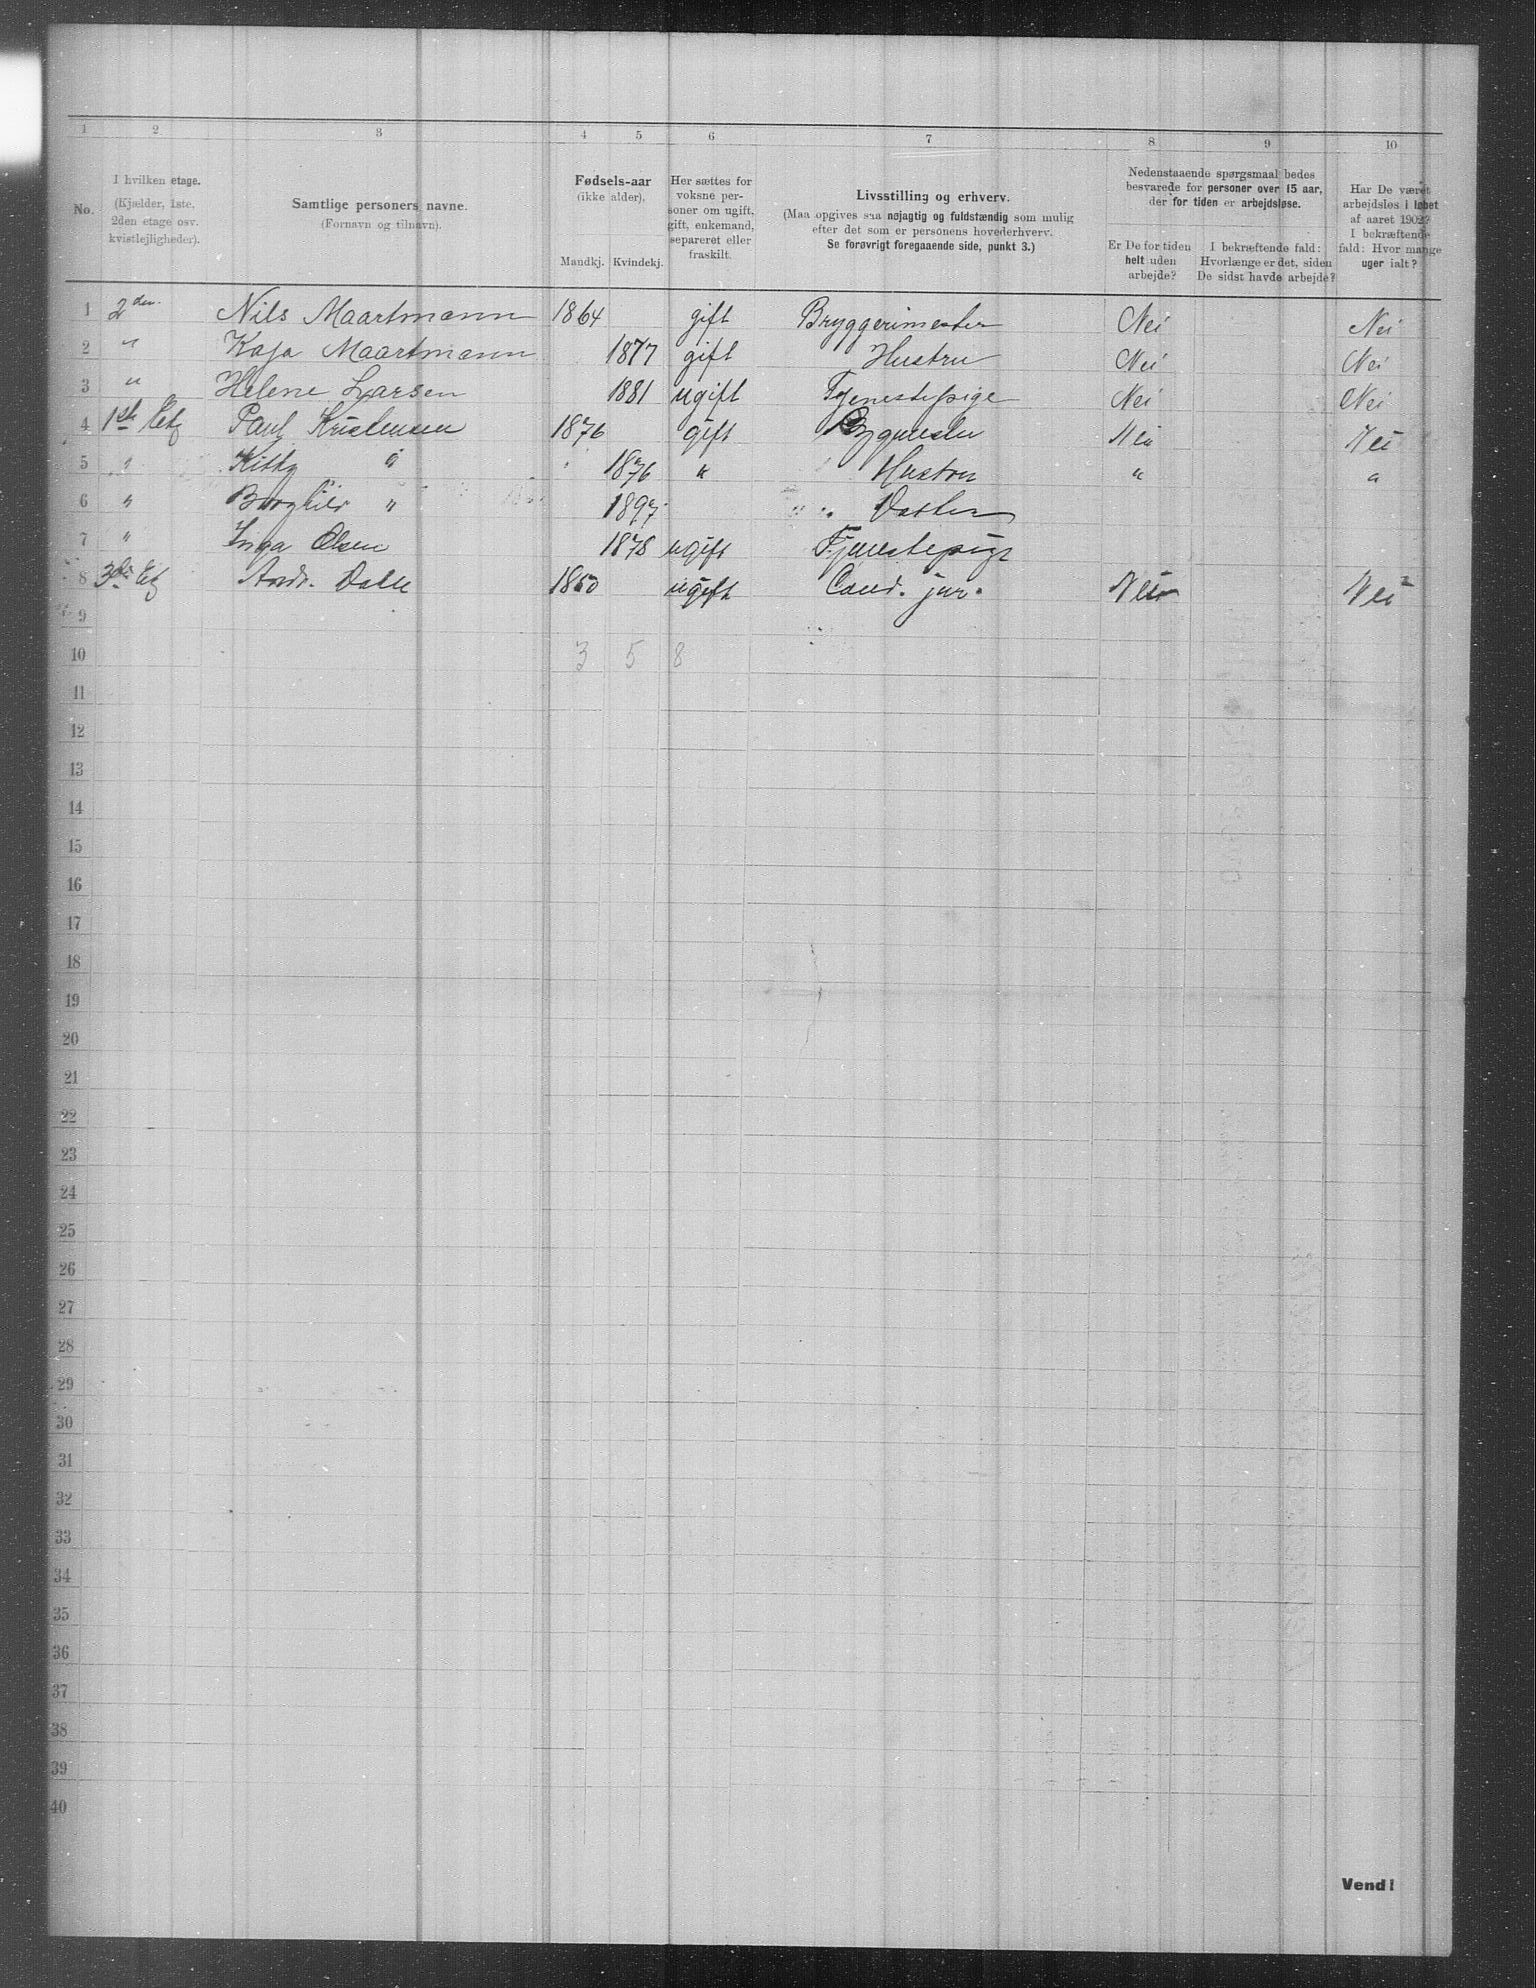 1 2 3 4 5 6 7 8 9 10
No.
I hvilken etage.
(Kjælder, 1ste,
2den etage osv.
kvistlejligheder).
Samtlige personers navne.
(Fornavn og tilnavn).
Fødsels-aar
(ikke alder).
Mandkj. Kvindekj.
Her sættes for
voksne per-
soner om ugift,
gift, enkemand,
separeret eller
fraskilt.
Livsstilling og erhverv.
(Maa opgives saa nøjagtig og fuldstændig som mulig
efter det som er personens hovederhverv.
Se forøvrigt foregaaende side, punkt 3.)
Nedenstaaende spørgsmaal bedes
besvarede for personer over 15 aar,
der for tiden er arbejdsløse.
Er De for tiden
helt uden
arbejde?
I bekræftende fald:
Hvorlænge er det, siden
De sidst havde arbejde?
Har De været
arbejdsløs i løbet
af aaret 1902?
I bekræftende
fald: Hvor mange
uger ialt?
1 2den Nils Maartmann 1864 gift Bryggerimester Nei Nei
2 " Kaja Maartmann 1877 gift Hustru Nei Nei
3 " Helene Larsen 1881 ugift Tjenestepige Nei Nei
4 1ste Etg Paul Kristensen 1876 gift Bygmester Nei Nei
5 " Kitty " 1876 " Hustru " "
6 " Borghild " 1897 Datter
7 " Inga Olsen 1878 ugift Tjenestepige
8 3die Etg Andr. 1850 ugift Cand. jur. Nei Nei
9
10 3 5 8
11
12
13
14
15
16
17
18
19
20
21
22
23
24
25
26
27
28
29
30
31
32
33
34
35
36
37
38
39
40
Vend!